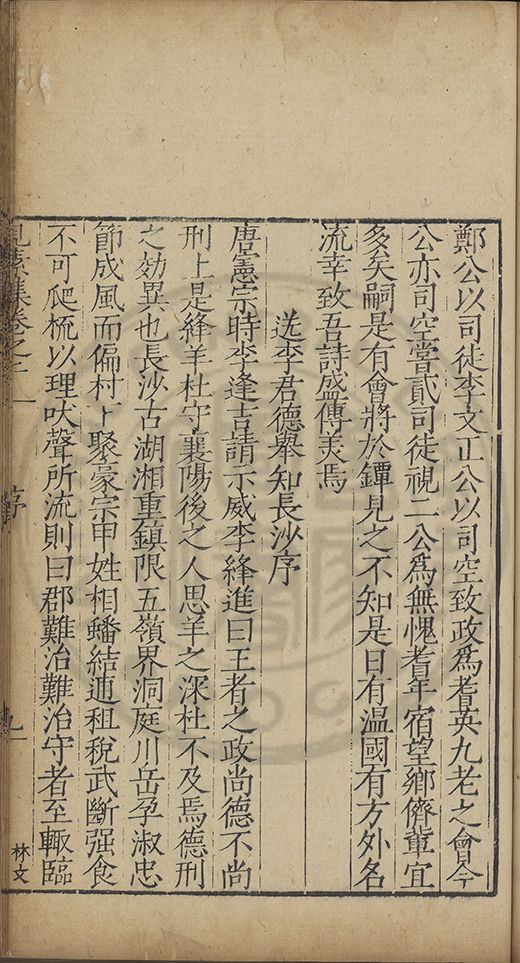 鄭公以司徒李文正公以司空致政爲耆英九老之會今
公亦司空嘗貳司徒視二公爲無愧耆年宿望鄉儕輩宜
多矣嗣是有會將於鐔見之不知是日有温國有方外名
流幸致吾詩盛傳美焉
送李君德舉知長沙序
唐憲宗時李逢吉請示威李絳進曰王者之政尚德不尚
刑上是絳羊杜守襄陽後之人思羊之深杜不及焉德刑
之効異也長沙古湖湘重鎮限五嶺界洞庭川岳孕淑忠
節成風而偏村下聚豪宗甲姓相蟠結逋租稅武斷强食
不可爬梳以理吠聲所流則曰郡難治難治守者至輙臨
見素集卷之二
序
九
林文